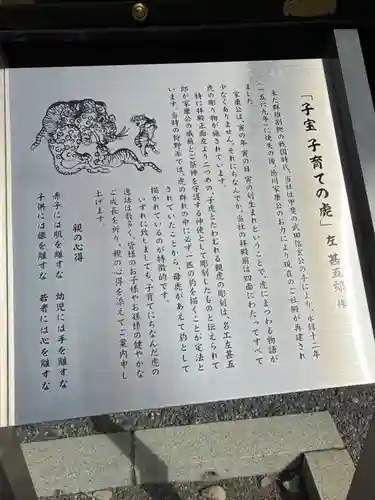 「子宝 子育ての虎」 左 甚五郎 作
未だ群雄割拠の戦国時代、当社は甲斐の武田信玄公の手により、永禄十二年
(一五六九年)に焼失の後、徳川家康公のお力により現在のご社殿が再建され
ました。
家康公は、寅の年 寅の日 寅の刻生まれということで、虎にまつわる物語が
少なくありません。それにちなんでか、当社の拝殿前は四面にわたってすべて
虎の彫り物が施されています。
特に拝殿正面左より二つめの、子虎とたわむれる親虎の彫刻は、名工左甚五
郎が家康公の威厳とご祭神を守護する神使として彫刻したものと伝えられて
います。当時の狩野派では、虎の群れの中に必ず一匹の豹を描くことが定法と
されていたことから、母虎があえて豹として
描かれているのが特徴的です。
いずれに致しましても、子育てにちなんだ虎の
逸話は数多く、皆様のお子様やお孫様の健やかな
ご成長を祈り、親の心得を添えてご案内申し
上げます。
親の心得
赤子には肌を離すな 幼児には手を離すな
子供には眼を離すな 若者には心を離すな